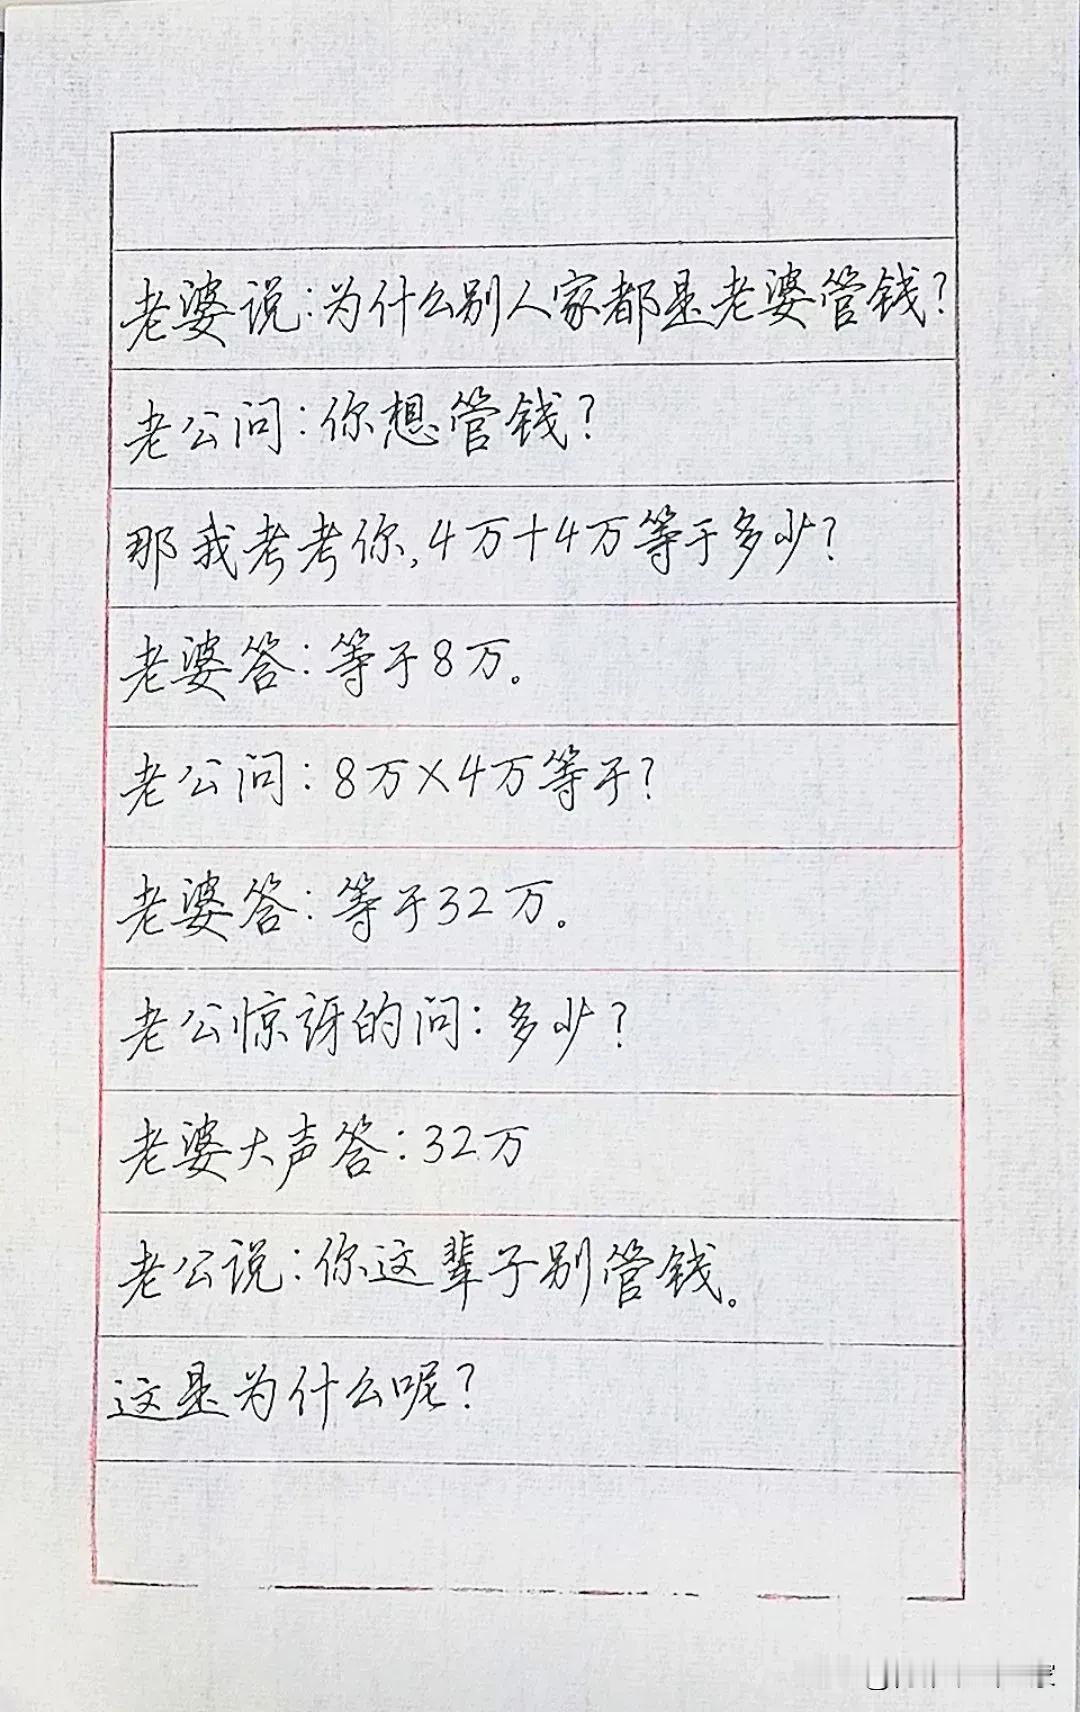 老婆说:为什么别人家都是老婆管钱?
老公问:你想管钱?
那我考考你,4万+4万等于多少?
老婆答:等于8万。
老公问:8万×4万等于?
老婆答:等于32万。
老公惊讶的问:多少?
老婆大声答:32万
老公说:你这辈子别管钱。
这是为什么呢?